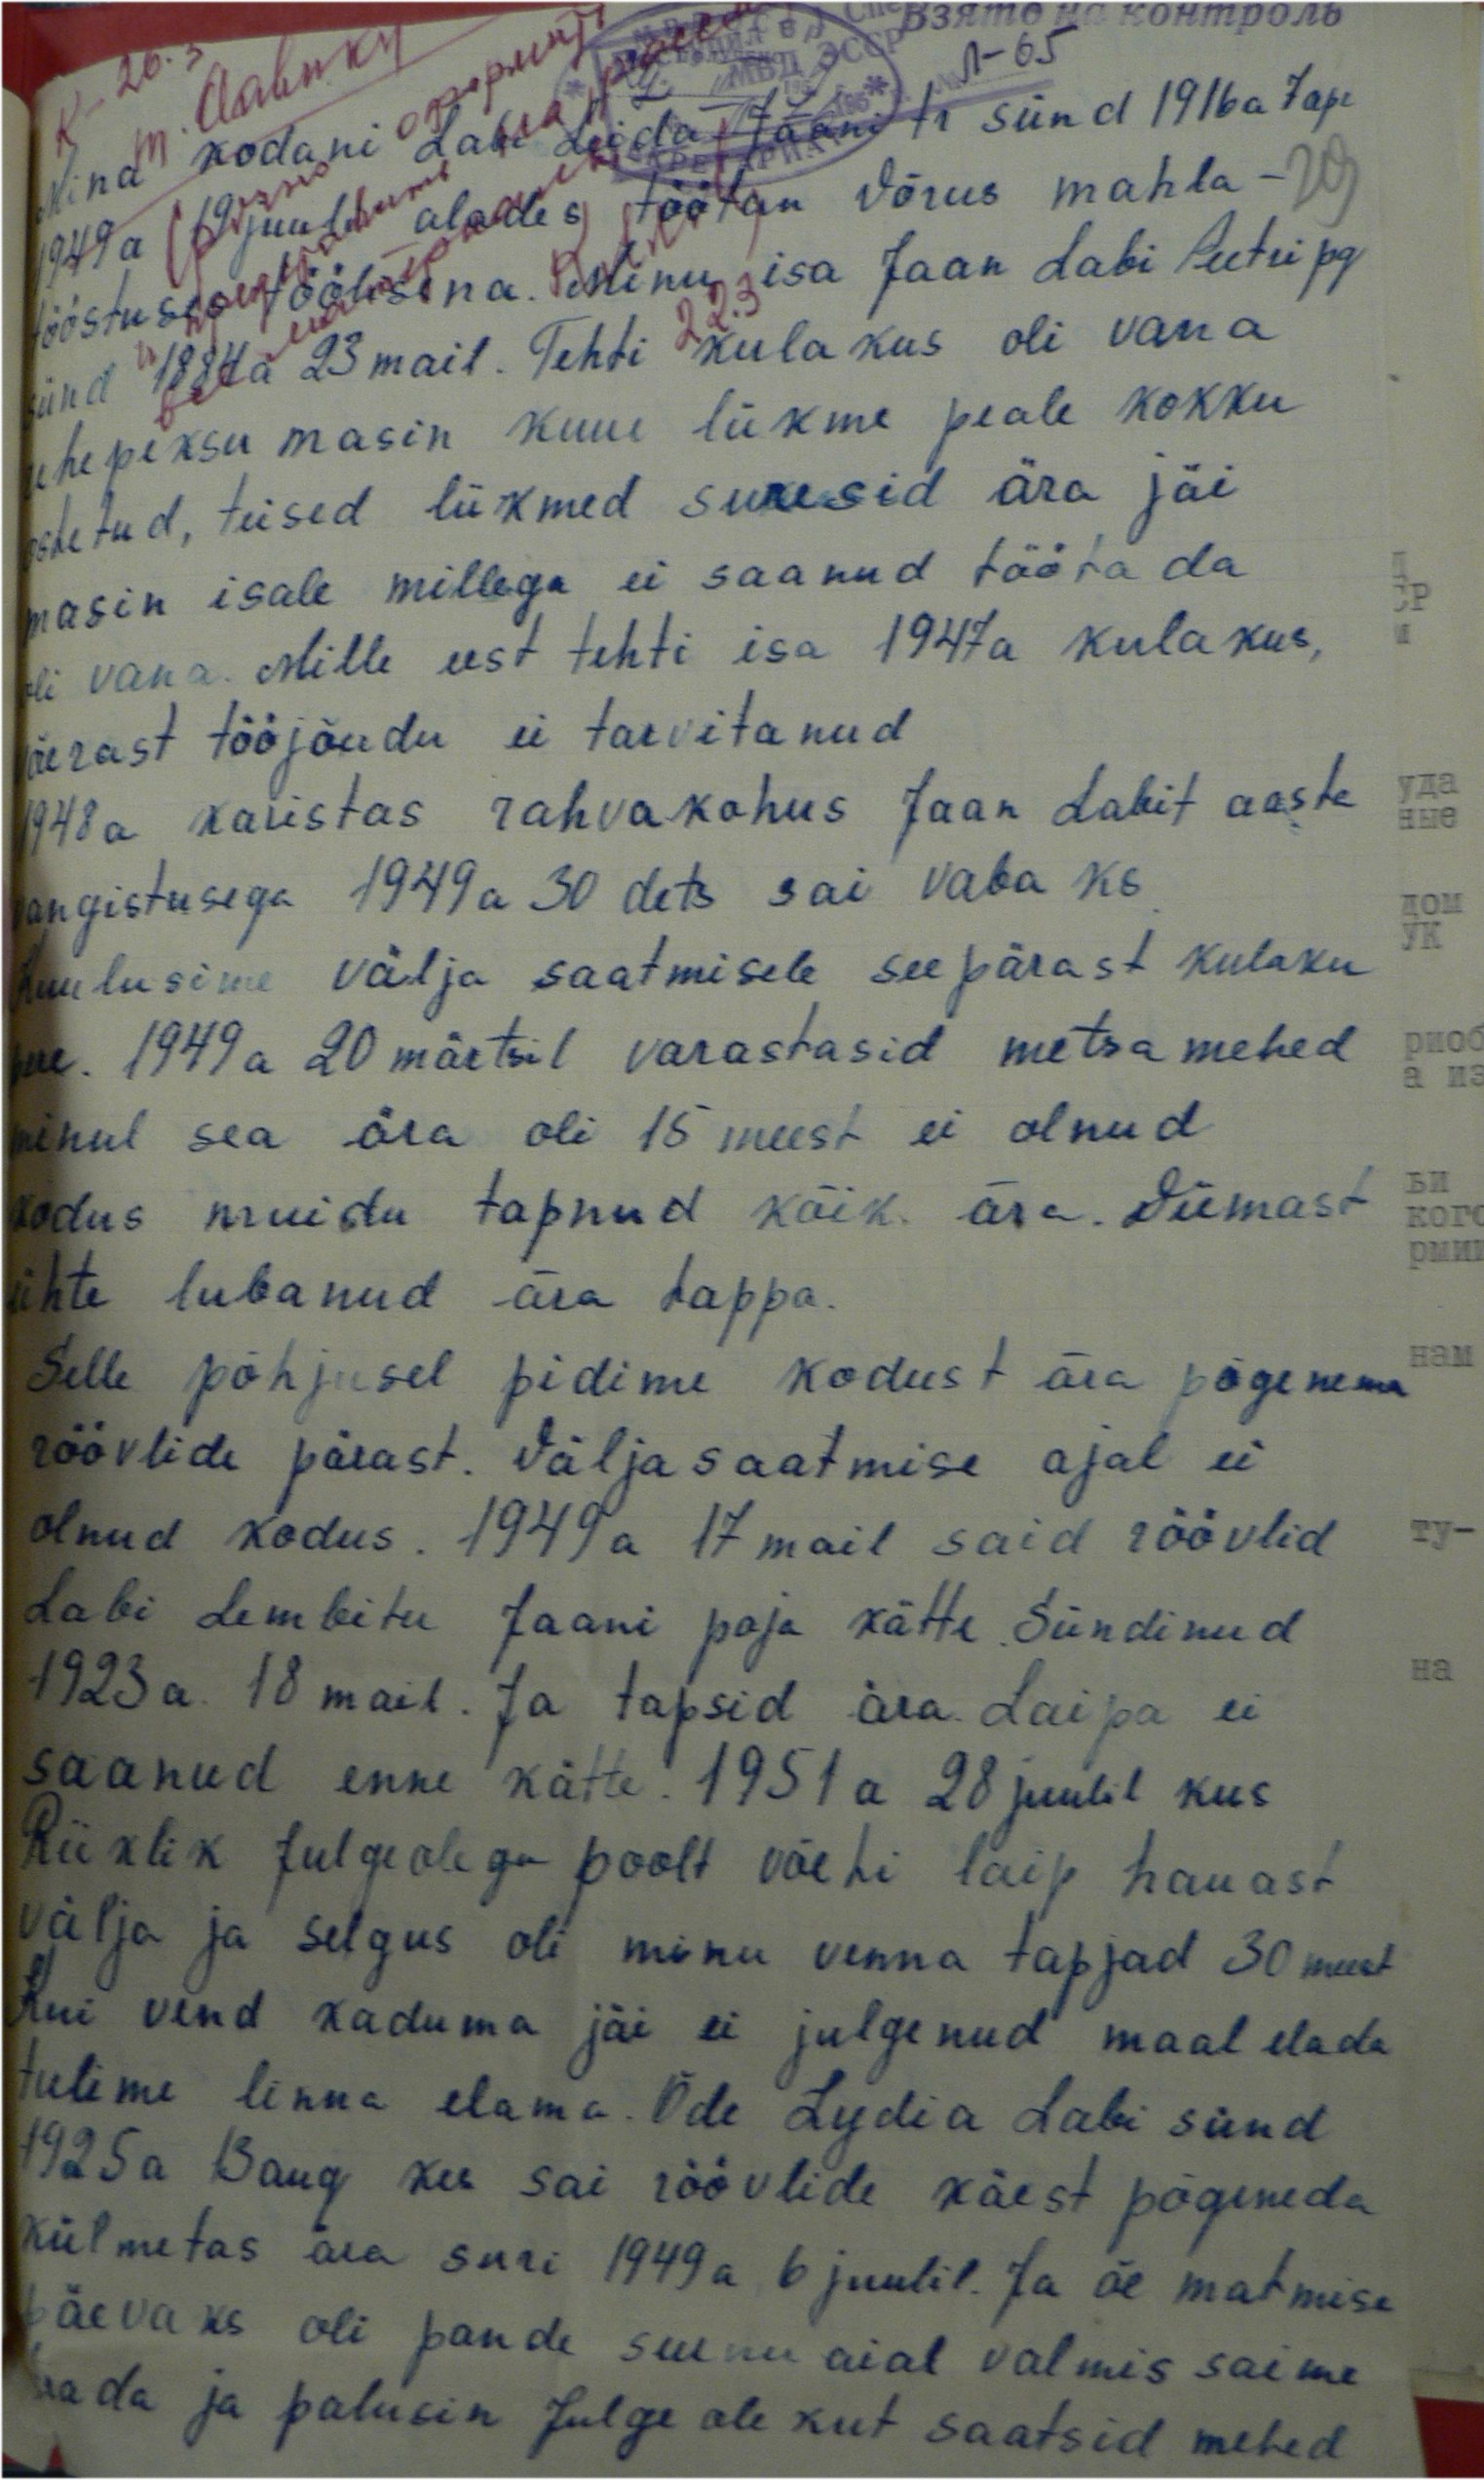 Взято на контроль
МВД ЭССР
СЕКРЕТАРИАТ
Л-65
К- 26.3
29
22.3
Mina kodani Labi Leida Jaani tr sünd 1916a 7apr
1949a 19 juulil alades töötan Võrus mahla-
tööstuses töölisena. Minu isa Jaan Labi Peetri pg
sünd 1884a 23 mail. Tehti kulakus oli vana
rehepeksu masin kuue liikme peale kokku
ostetud, teised liikmed suresid ära jäi
masin isale millega ei saanud töötada
oli vana. Mille eest tehti isa 1947a kulakus,
võerast tööjõudu ei tarvitanud
1948a karistas rahvakohus Jaan Labit aasta
vangistusega 1949a 30 dets sai vaba ks
Kuulusime välja saatmisele seepärast kulaku
pere. 1949a 20 märtsil varastasid metsa mehed
minul sea ära oli 15 meest ei olnud
kodus muidu tapnud kõik ära. Viimast
ühte lubanud ära tappa.
Selle põhjusel pidime kodust ära põgenema
röövlide pärast. Väljasaatmise ajal ei
olnud kodus. 1949a 17 mail said röövlid
Labi Lembitu Jaani poja kätte. Sündinud
1923a. 18 mail. Ja tapsid ära. Laipa ei
saanud enne kätte. 1951a 28 juulil kus
Riiklik Julgeolega poolt võeti laip hauast
välja ja selgus oli minu venna tapjad 30 meest
Kui vend kaduma jäi ei julgenud maal elada
tulime linna elama. Õde Lydia Labi sünd
1925a 13 aug kes sai röövlide käest põgeneda
külmetas ära suri 1949a 6 juulil. Ja õe matmise
päevaks oli pande surnu aial valmis saime
ja palusin Julge olekut saatsid mehed
СР
уда
ные
дом
УК
риоб
а из
би
кого
рмин
нам
ту-
на